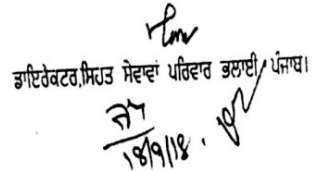 ਡਾਇਰੈਕਟਰ,ਸਿਹਤ ਸੇਵਾਵਾਂ ਪਰਿਵਾਰ ਭਲਾਈ, ਪੰਜਾਬ।
18/9/18.